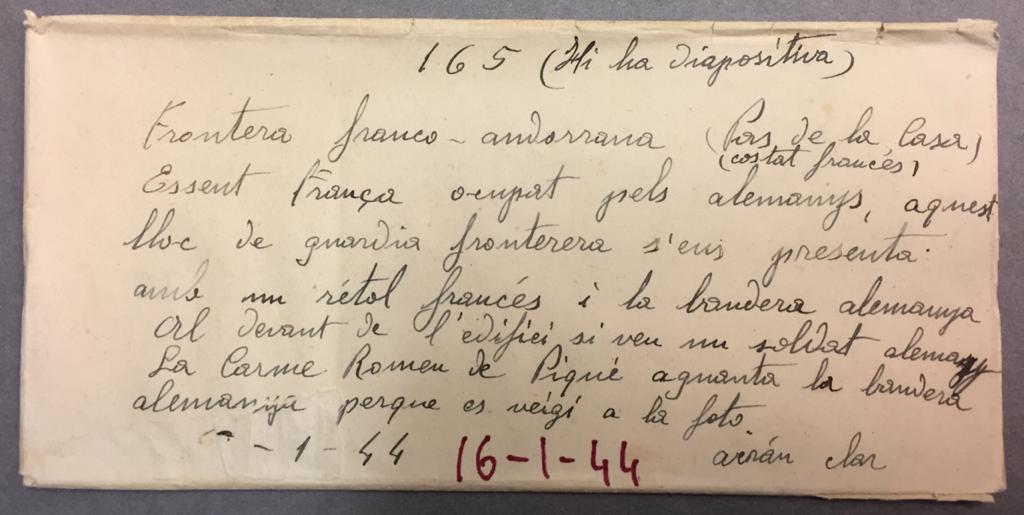 165 (Hi ha diapositiva)
Frontera franco-andorrana (Pas de la Casa)
(costat francés)
Essent França ocupat pels alemanys, aquest
lloc de guardia fronterera s'ens presenta
amb un rétol francés i la bandera alemanya
Al devant de l'edifici si veu un soldat alemany
La Carme Romeu de Piqué aguanta la bandera
alemanya perque es veigi a la foto.
- - 1 - 44 16-1-44 clar